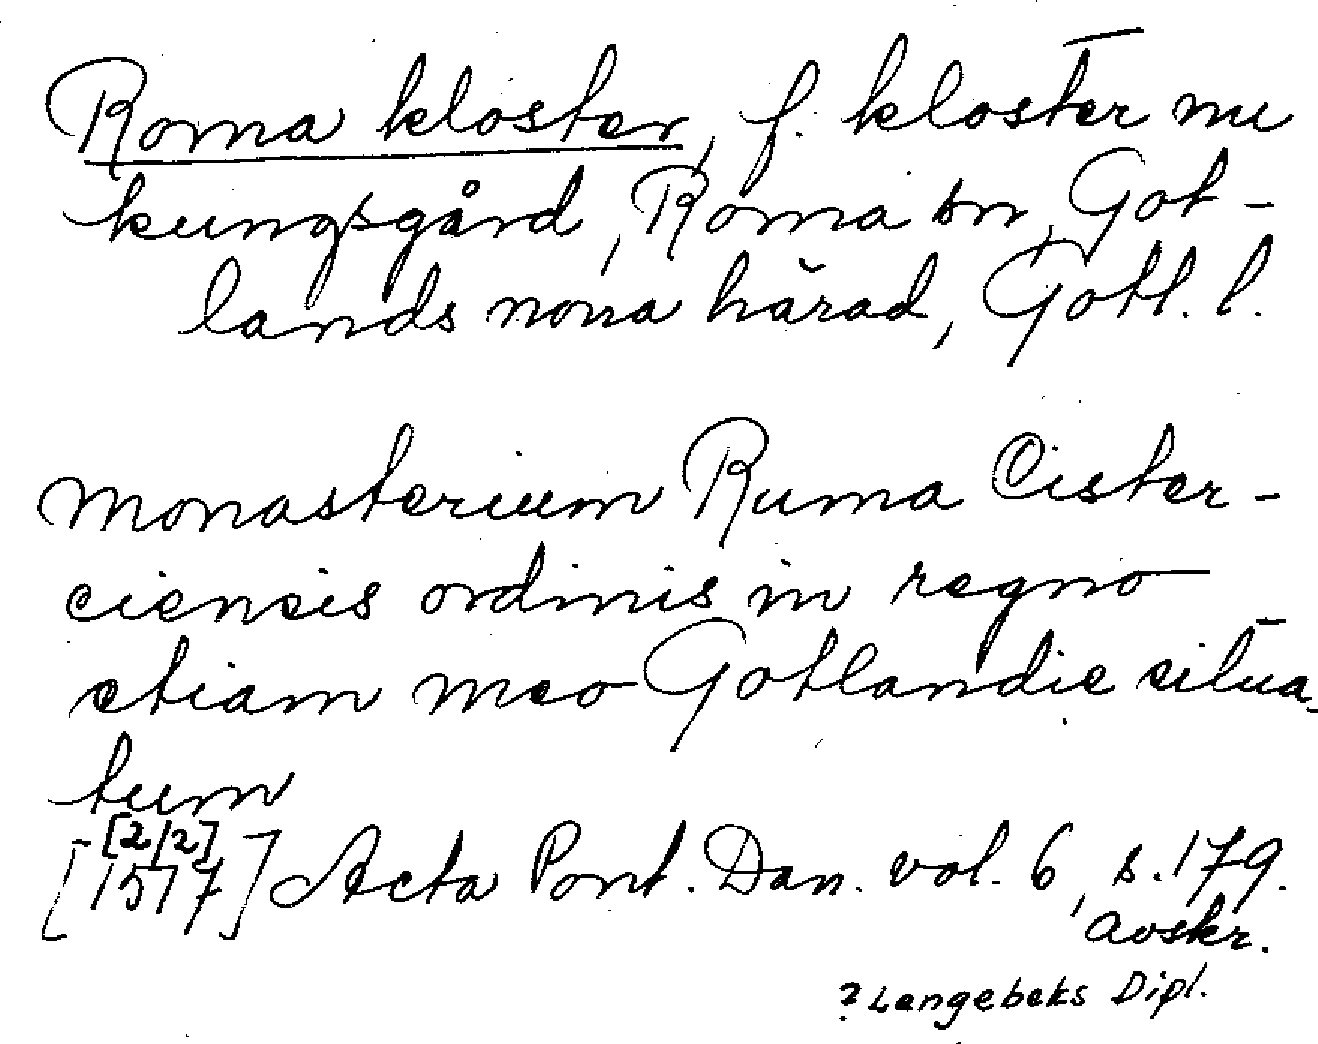 Roma kloster, f. kloster nu
kungsgård, Roma sn, Got-
lands norra härad, Gotl. l.
Monasterium Ruma Cister-
ciensis ordinis in regno
etiam meo Gotlandie situa-
tum
[2/2]
[1517] Acta Pont. Dan. vol. 6, s. 179.
Avskr.
? Langebeks Dipl.